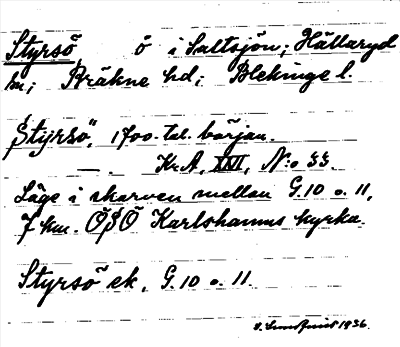 Styrsö, ö i Saltsjön; Hällaryd
sn; Bräkne hd; Blekinge l.
"Styrsö", 1700-tal. början.
—. Kr.A, XXVI, N:o 33.
Läge i skarven mellan G.10 o. 11,
7 km. ÖSÖ Karlshamns kyrka.
Styrsö ek. G.10 o. 11.
Lundquist 1936.